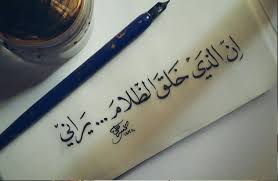 اِنَّ الَّذِي خَلَقَ الظَّلَامَ... يَرَانِي